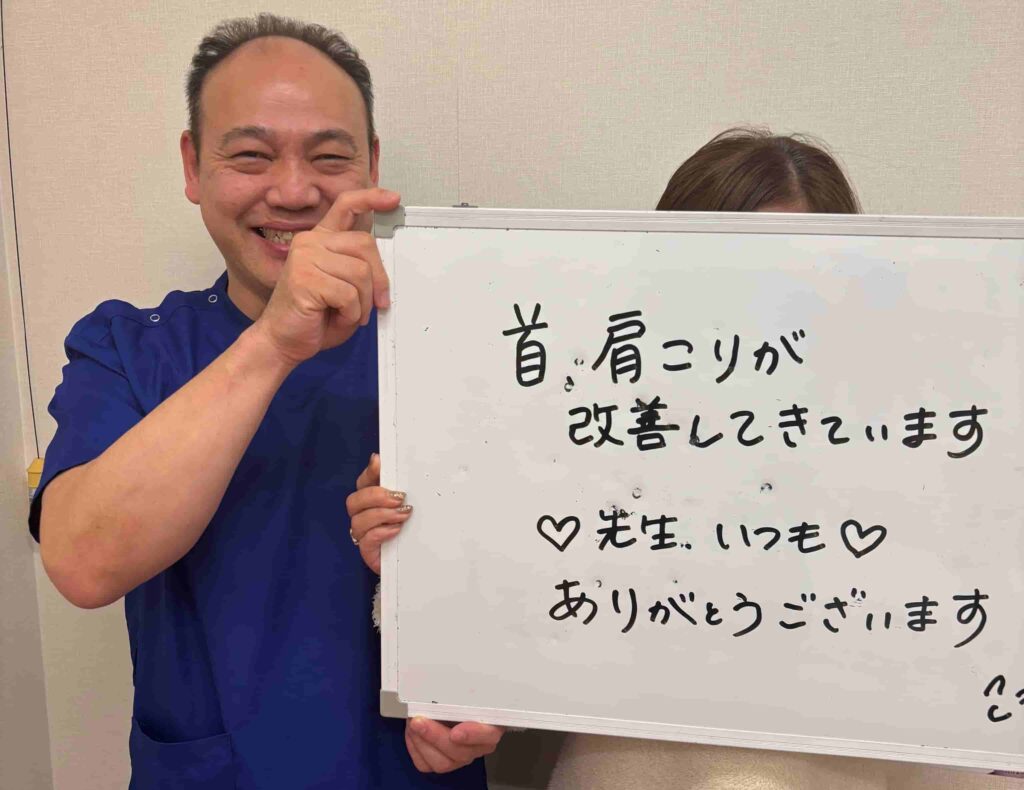 首、肩こりが
改善してきています
♡先生、いつも♡
ありがとうございます